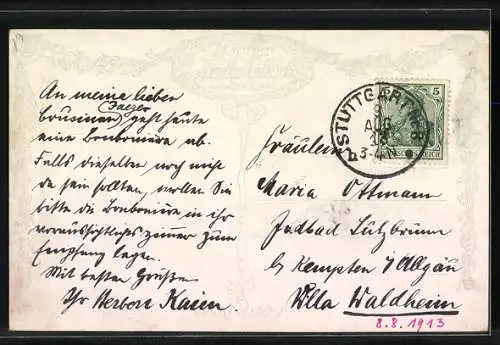 An meine lieben
geht heute
eine Bonbonière ab.
Falls dieselben noch nicht
da sein sollten, wollen Sie
bitte die Bonbonière in ihr
voraussichtliches Zimmer zum
Empfang legen.
Mit besten Grüßen
Ihr Herbert Kaien.
STUTTGART
AUG
13
3-4N
5
Fräulein
Maria Ottmann
Jodbad Sulzbrunn
b/ Kempten i/ Allgäu
Villa Waldheim
8.8.1913